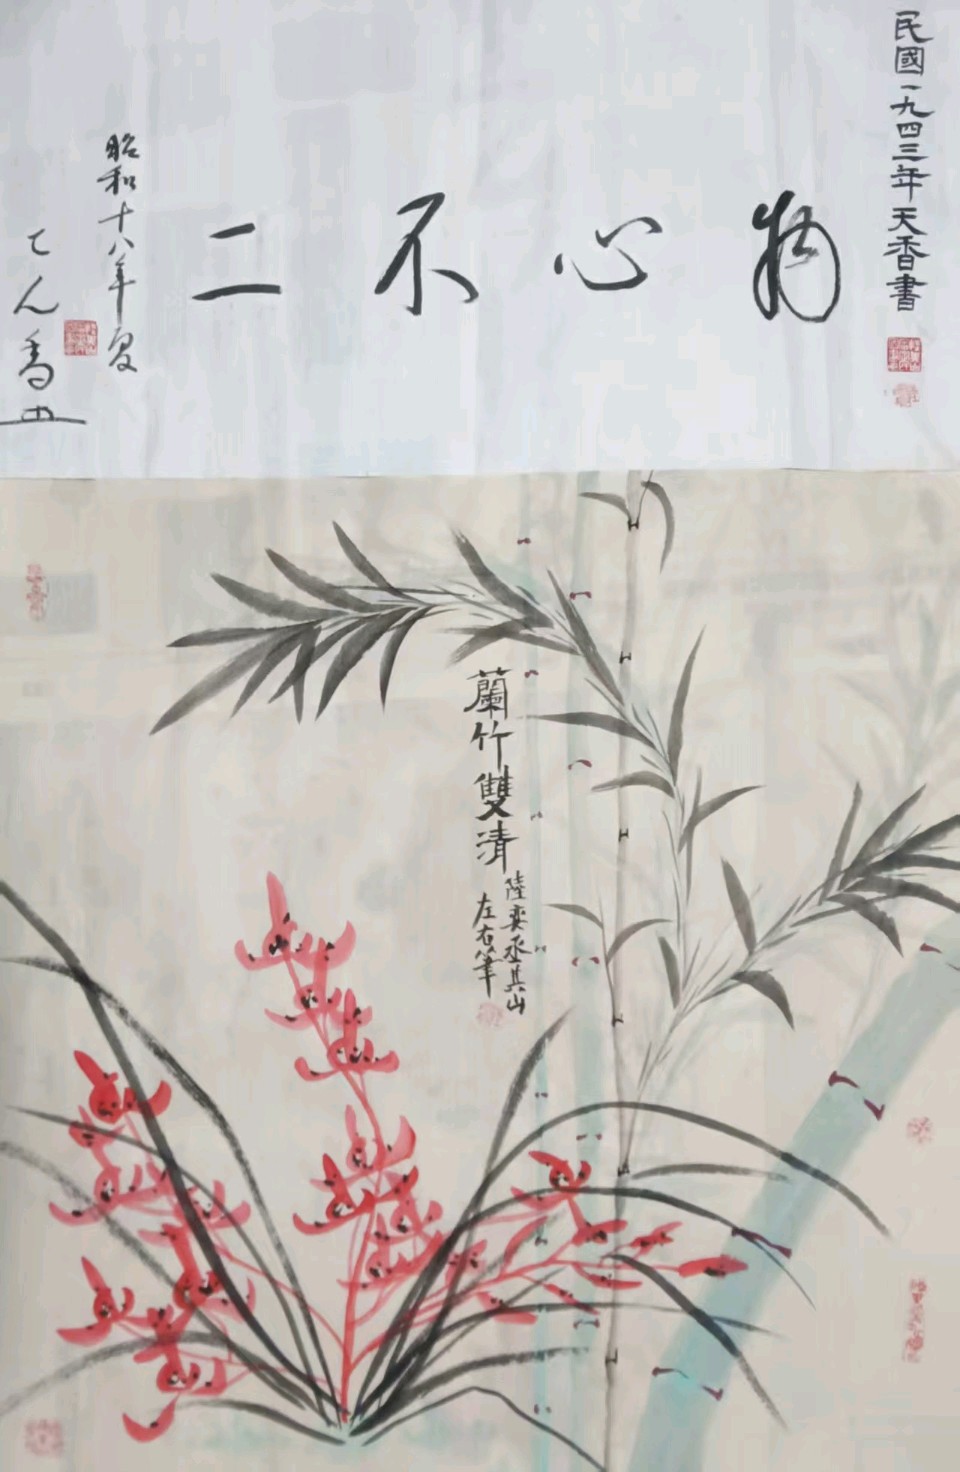 民國一九四三年天香書
物心不二
昭和十八年夏
蘭竹雙清
陸奕丞其山
左右筆